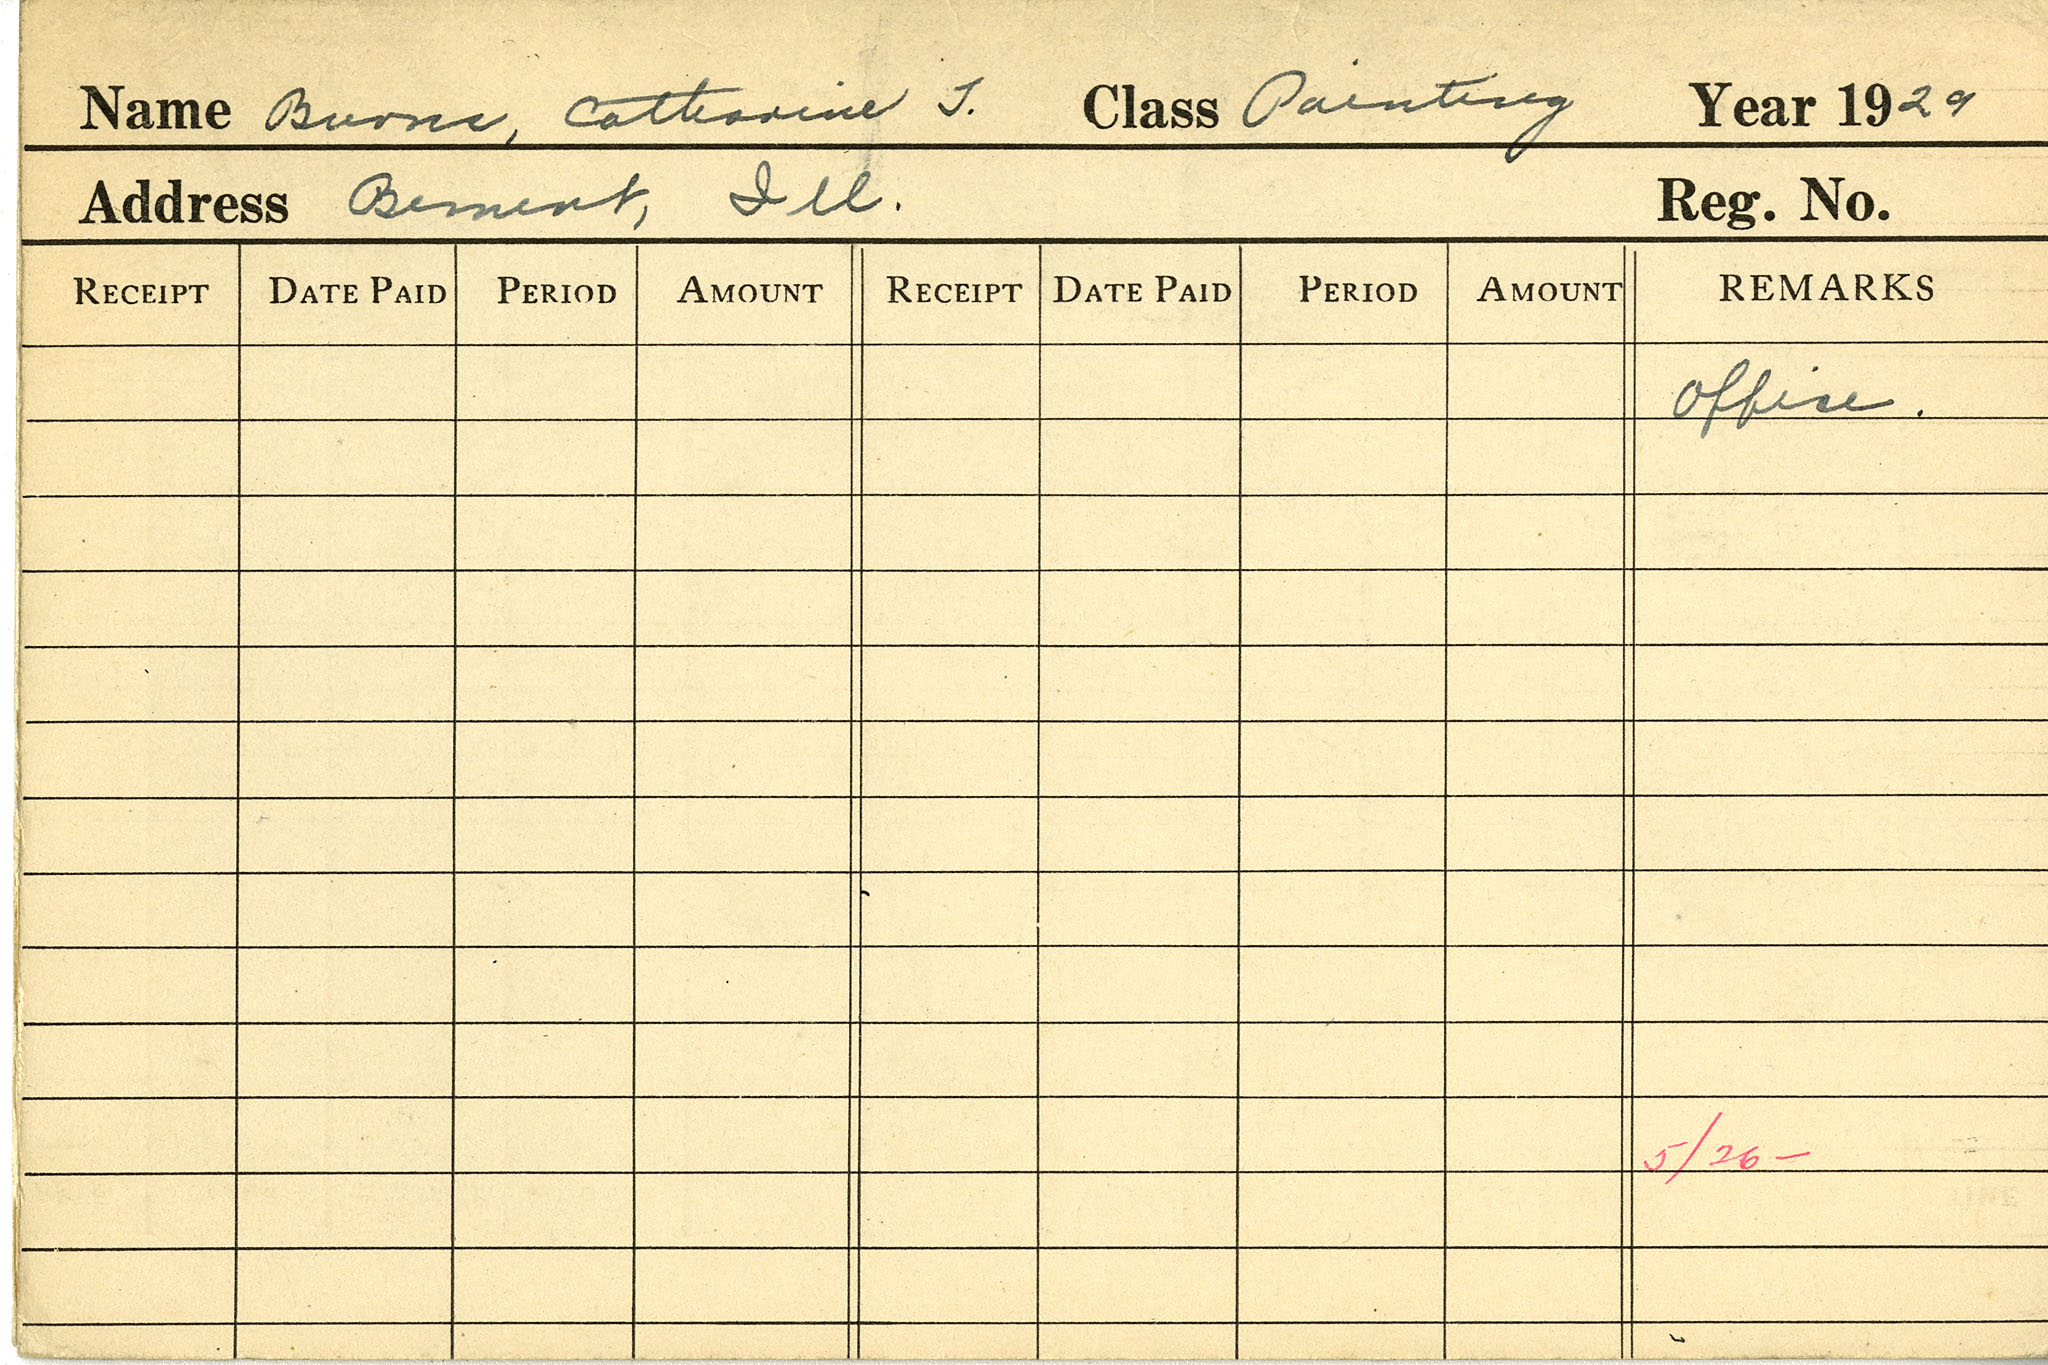 Name Burns, Catherine T. Class Painting Year 1929
Address Bement, Ill. Reg. No.
RECEIPT DATE PAID PERIOD AMOUNT RECEIPT DATE PAID PERIOD AMOUNT REMARKS
Office.
5/26 –